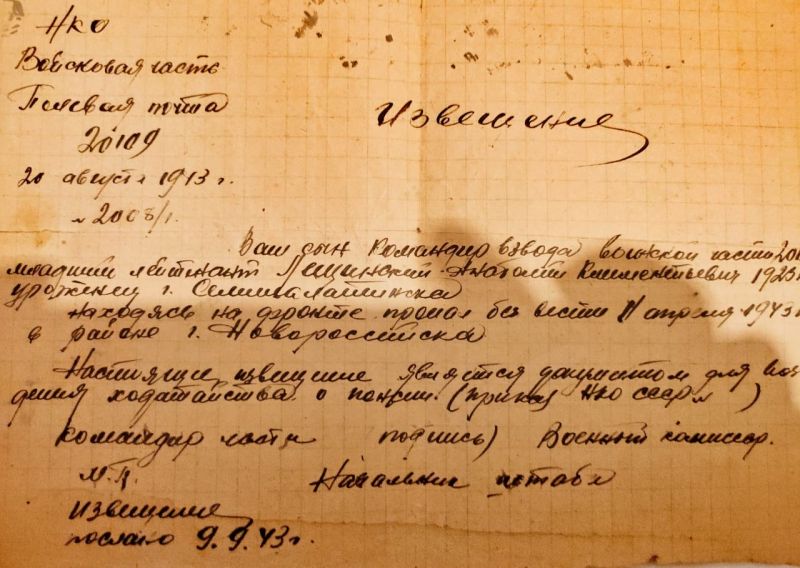 НКО
Войсковая часть
Полевая почта
20109
Извещение
20 августа 1943 г.
№ 2008/1.
Ваш сын командир взвода воинской части 201
младший лейтенант Лещинский Анатолий Климентьевич 1923
уроженец г. Семипалатинска
находясь на фронте пропал без вести 11 апреля 1943
в районе г. Новороссийска
Настоящее извещение является документом для воз
дения ходатайства о пенсии (приказ НКО СССР № )
командир части подпись) Военный комиссар.
М.П. Начальник штаба
Извещение
послано 9.9.43 г.